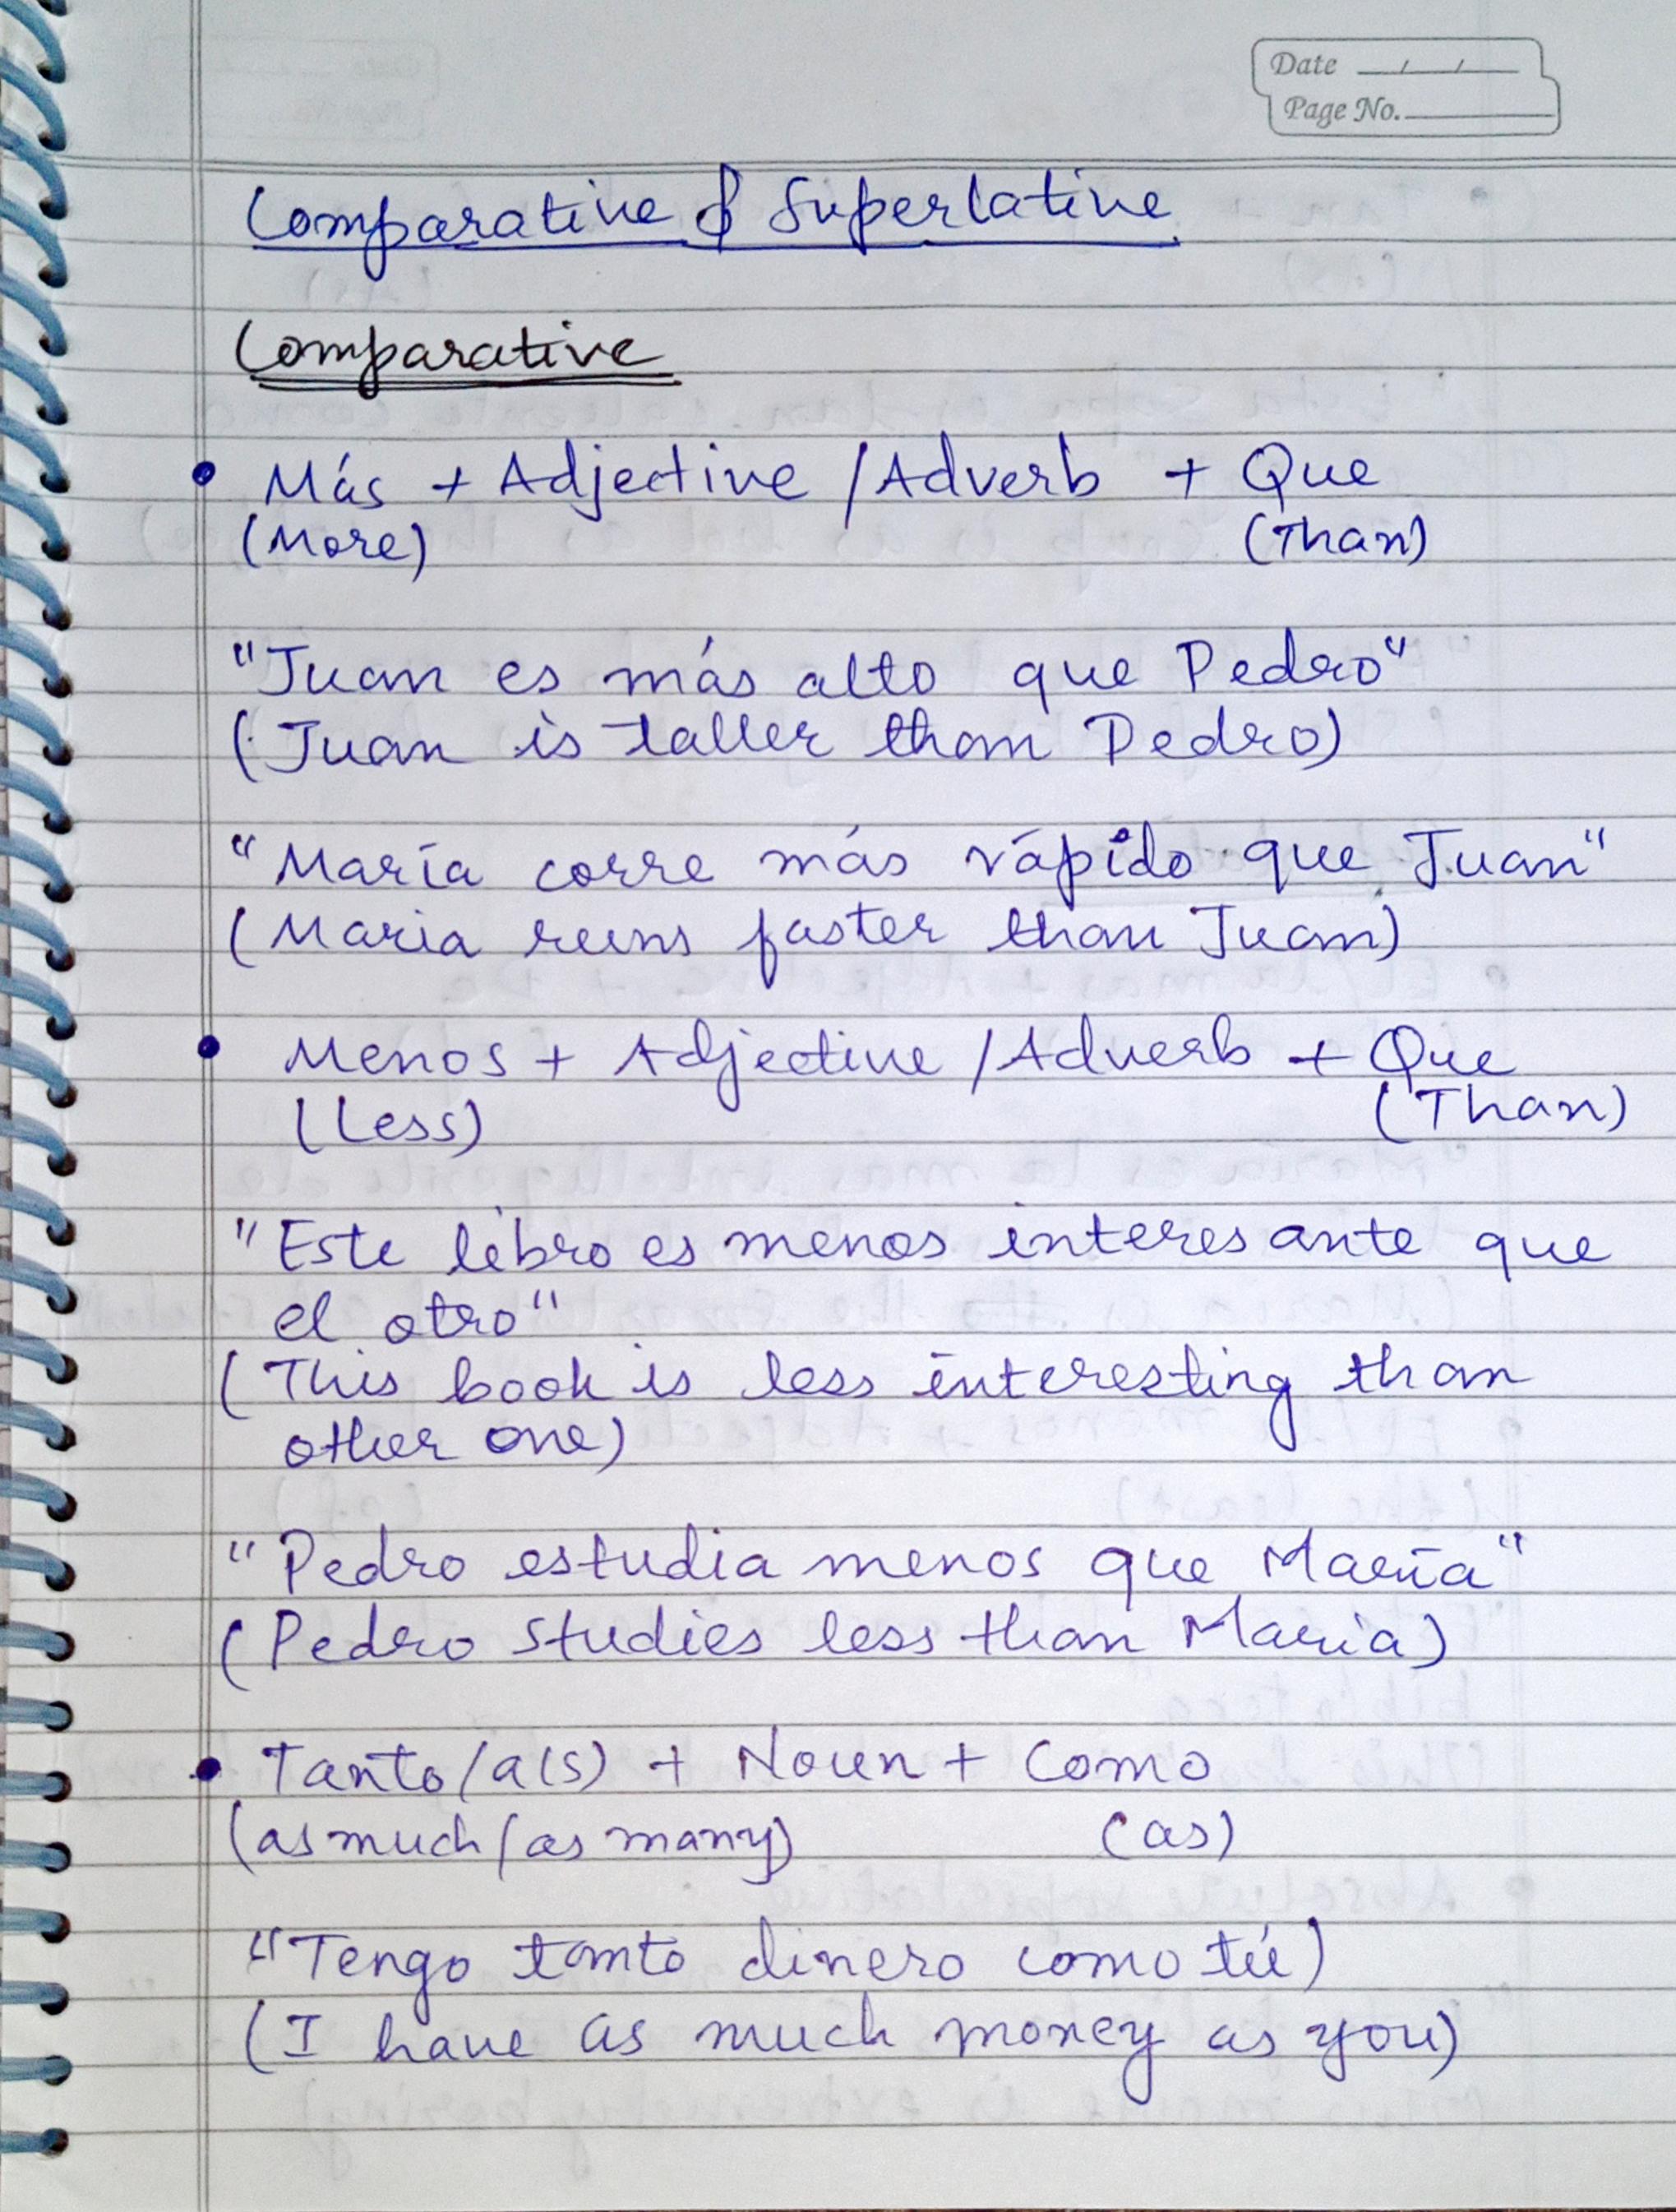 Date __/__/__
Page No.
Comparative & Superlative
Comparative
• Más + Adjective / Adverb + Que
(More) (Than)
"Juan es más alto que Pedro"
(Juan is taller than Pedro)
"María corre más rápido que Juan"
(Maria runs faster than Juan)
• Menos + Adjective / Adverb + Que
(Less) (Than)
"Este libro es menos interesante que
el otro"
(This book is less interesting than
other one)
"Pedro estudia menos que María"
(Pedro studies less than Maria)
• Tanto/a(s) + Noun + Como
(as much / as many) (as)
"Tengo tanto dinero como tú)
(I have as much money as you)